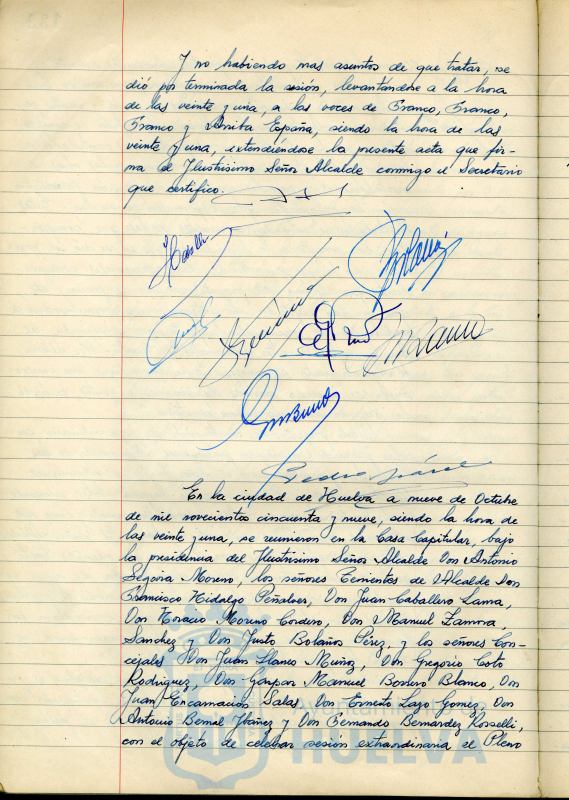 Y no habiendo mas asuntos de que tratar, se
dió por terminada la sesión, levantándose a la hora
de las veinte y una, a las voces de Franco, Franco,
Franco y Arriba España, siendo la hora de las
veinte y una, extendiéndose la presente acta que fir-
ma el Ilustrisimo Señor Alcalde conmigo el Secretario
que certifico.
En la ciudad de Huelva a nueve de Octubre
de mil novecientos cincuenta y nueve, siendo la hora de
las veinte y una, se reunieron en la Casa Capitular, bajo
la presidencia del Ilustrisimo Señor Alcalde Don Antonio
Segovia Moreno, los señores Tenientes de Alcalde Don
Francisco Hidalgo Peñalver, Don Juan Caballero Lama,
Don Horacio Moreno Cordero, Don Manuel Zamora
Sanchez y Don Justo Bolaños Pérez, y los señores Con-
cejales Don Juan Llanes Muñoz, Don Gregorio Coto
Rodriguez, Don Gaspar Manuel Borrero Blanco, Don
Juan Encarnación Salas, Don Ernesto Lazo Gomez, Don
Antonio Bernal Ibáñez y Don Fernando Bernardez Rosselli,
con el objeto de celebrar sesión extraordinaria el Pleno
HUELVA